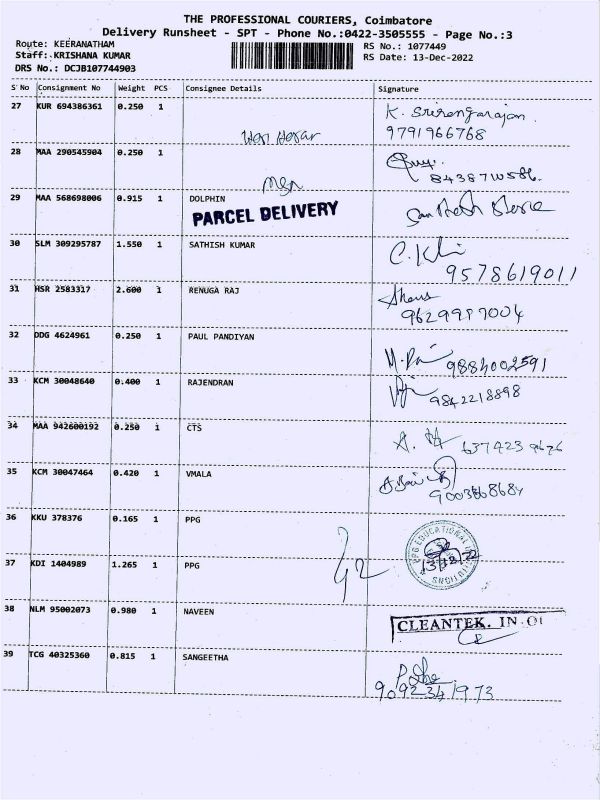 THE PROFESSIONAL COURIERS, Coimbatore
Delivery Runsheet - SPT - Phone No.:0422-3505555 - Page No.:3
Route: KEERANATHAM
Staff: KRISHANA KUMAR
DRS No.: DCJB107744903
RS No.: 1077449
RS Date: 13-Dec-2022
S No Consignment No Weight PCS Consignee Details Signature
27 KUR 694386361 0.250 1 K. Srirengarajan
9791966768
28 MAA 290545904 0.250 1
29 MAA 568698006 0.915 1 DOLPHIN
PARCEL DELIVERY
30 SLM 309295787 1.550 1 SATHISH KUMAR
9578619011
31 HSR 2583317 2.600 1 RENUGA RAJ
32 DDG 4624961 0.250 1 PAUL PANDIYAN
9884002591
33 KCM 30048640 0.400 1 RAJENDRAN
9842218898
34 MAA 942600192 0.250 1 CTS
35 KCM 30047464 0.420 1 VMALA
36 KKU 378376 0.165 1 PPG
PPG EDUCATIONAL INSTITUTIONS
13/12/22
37 KDI 1404989 1.265 1 PPG
38 NLM 95002073 0.980 1 NAVEEN
CLEANTEK. IN
39 TCG 40325360 0.815 1 SANGEETHA
9092341973